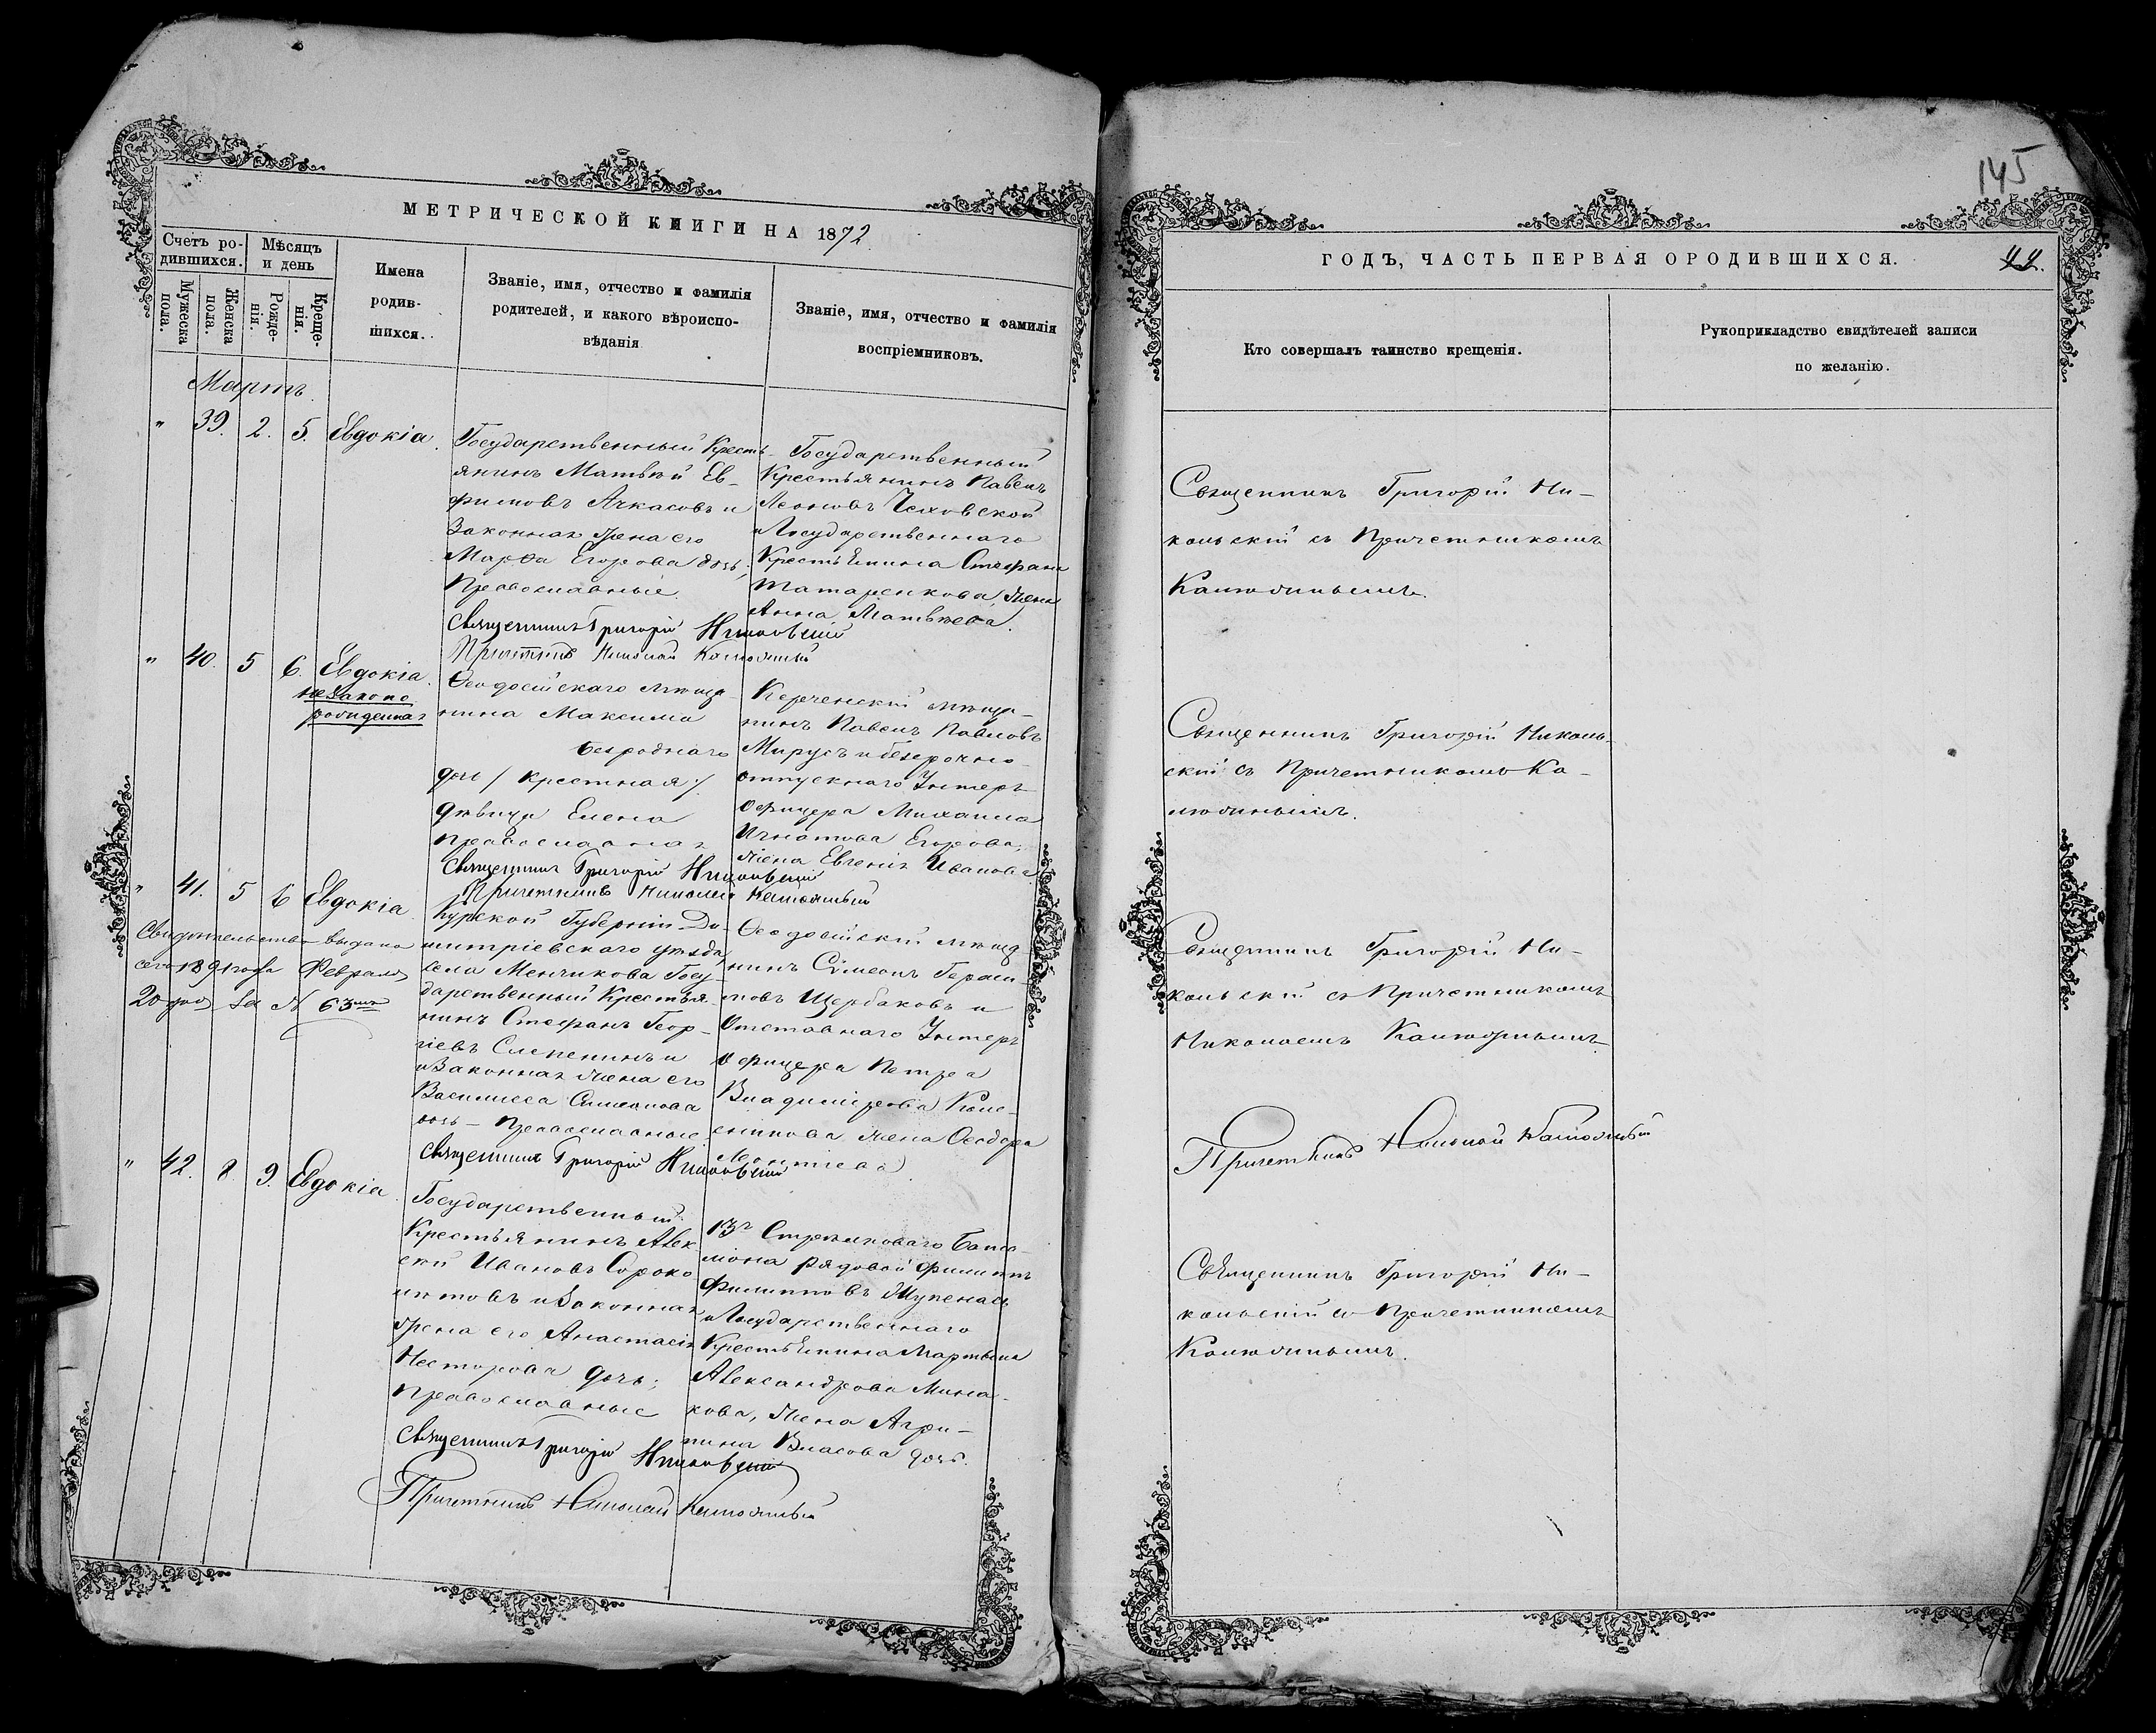 МЕТРИЧЕСКОЙ КНИГИ НА 1872
Счетъ ро-
дившихся.
Мѣсяцъ
и день
Мужеска
пола.
Женска
пола.
Рожде-
нія.
Креще-
нія.
Имена
родив-
шихся.
Званіе, имя, отчество и фамилія
родителей, и какого вѣроиспо-
вѣданія
Званіе, имя, отчество и фамилія
воспріемниковъ.
Мартъ.
" 39. 2. 5. Евдокіа.
Государственный Кресть-
янинъ Матвѣй Ев-
фимовъ Ачкасовъ и
Законная жена его
Марѳа Егорова дочь;
Православные.
Священникъ Григорій Никольскій
Причетникъ Николай
Государственный
Крестьянинъ Павелъ
Леоновъ Чеховской
и Государственнаго
Крестьянина Стефана
Татаренкова, жена
Анна Матвѣева.
" 40. 5 6. Евдокіа.
незаконо
рожденная
Ѳеодосійскаго мѣща-
нина Максима
безроднаго
дочь / крестная /
дѣвица Елена
православная
Священникъ Григорій Никольскій
Причетникъ Николай
Керченскій мѣща-
нинъ Павелъ Павловъ
Мирусъ и безсрочно-
отпускнаго Унтеръ
офицера Михаила
Игнатова Егорова,
жена Евгенія Иванова
" 41. 5 6 Евдокіа.
Свидѣтельство выдано
сего 1891 года Февраля
20 дня за № 63мъ
Курской Губерніи Ди-
митріевскаго уѣзда,
села Менчикова Госу-
дарственный Крестья-
нинъ Стефанъ Геор-
гіевъ Слепенинъ и
и Законная жена его
Василисса Симеонова
дочь - Православные.
Священникъ Григорій Никольскій
Ѳеодосійскій мѣща
нинъ Симеонъ Гераси
мовъ Щербаковъ и
Отставнаго Унтеръ
офицера Петра
Владимірова
жена Ѳеодора
Леонтіева
" 42. 8. 9. Евдокіа.
Государственный
Крестьянинъ Алек-
сѣй Ивановъ Сороко
лѣтовъ и Законная
жена его Анастасія
Несторова дочь;
Православные
Священникъ Григорій Никольскій
Причетникъ Николай
13го Стрѣлковаго Бата-
ліона рядовой Филиппъ
Филипповъ
и Государственнаго
Крестьянина Мартына
Александрова Мина-
кова, жена Агри-
пина Власова дочь.
145
ГОДЪ, ЧАСТЬ ПЕРВАЯ ОРОДИВШИХСЯ.
44.
Кто совершалъ таинство крещенія.
Рукоприкладство свидѣтелей записи
по желанію.
Священникъ Григорій Ни-
кольскій съ Причетникомъ
Священникъ Григорій Николь-
скій съ Причетникомъ
Священникъ Григорій Ни-
кольскій съ Причетникомъ
Николаемъ
Причетникъ Николай
Священникъ Григорій Ни-
кольскій съ Причетникомъ